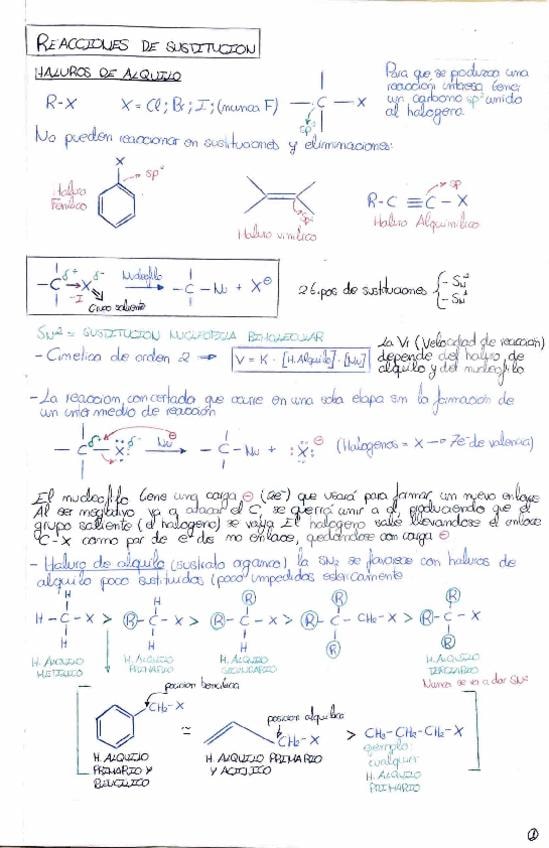 REACCIONES DE SUSTITUCION
HALUROS DE ALQUILO
R-X X = Cl ; Br ; I ; (nunca F)
- C - X
sp³
Para que se produzca una
reacción interesa tener
un carbono sp³ unido
al halogeno.
No pueden reaccionar en sustituciones y eliminaciones:
X
sp²
Haluro
Fenilico
sp²
Haluro vinilico
sp
R-C ≡ C - X
Haluro Alquinilico
- C δ+ → X δ- Nucleofilo → - C - Nu + X⊖
-I
Grupo saliente
2 tipos de sustituciones { - SN²
- SN¹
SN² = SUSTITUCION NUCLEOFILA BIMOLECULAR
- Cinetica de orden 2 → V = K · [H.Alquilo] · [Nu]
La Vi (Velocidad de reacción)
depende del haluro de
alquilo y del nucleofilo
- La reaccion, concertada que ocurre en una sola etapa sin la formación de
un intermedio de reacción
- C δ+ - X δ- Nu⊖ → - C - Nu + :X:⊖ (Halogenos = X → 7e⁻ de valencia)
El nucleofilo tiene una carga ⊖ (2e⁻) que usará para formar un nuevo enlace
Al ser negativo va a atacar el C, se querrá unir a el, produciendo que el
grupo saliente (el halogeno) se vaya El halogeno sale llevandose el enlace
C-X como par de e⁻ de no enlace, quedandose con carga ⊖
- Haluro de alquilo (sustrato organico), la SN2 se favorece con haluros de
alquilo poco sustituidos (poco impedidos estericamente
H H R R R
H - C - X > R - C - X > R - C - X > R - C - CH₂ - X > R - C - X
H H H R R
H. ALQUILO
METILICO
H. ALQUILO
PRIMARIO
H. ALQUILO
SECUNDARIO
H. ALQUILO
TERCIARIO
Nunca se va a dar SN²
posicion bencilica
CH₂-X
≃
posicion alquilica
CH₂-X
> CH₃-CH₂-CH₂-X
H. ALQUILO
PRIMARIO Y
BENCILICO
H. ALQUILO PRIMARIO
Y ALILICO
ejemplo
cualquier
H. ALQUILO
PRIMARIO
1